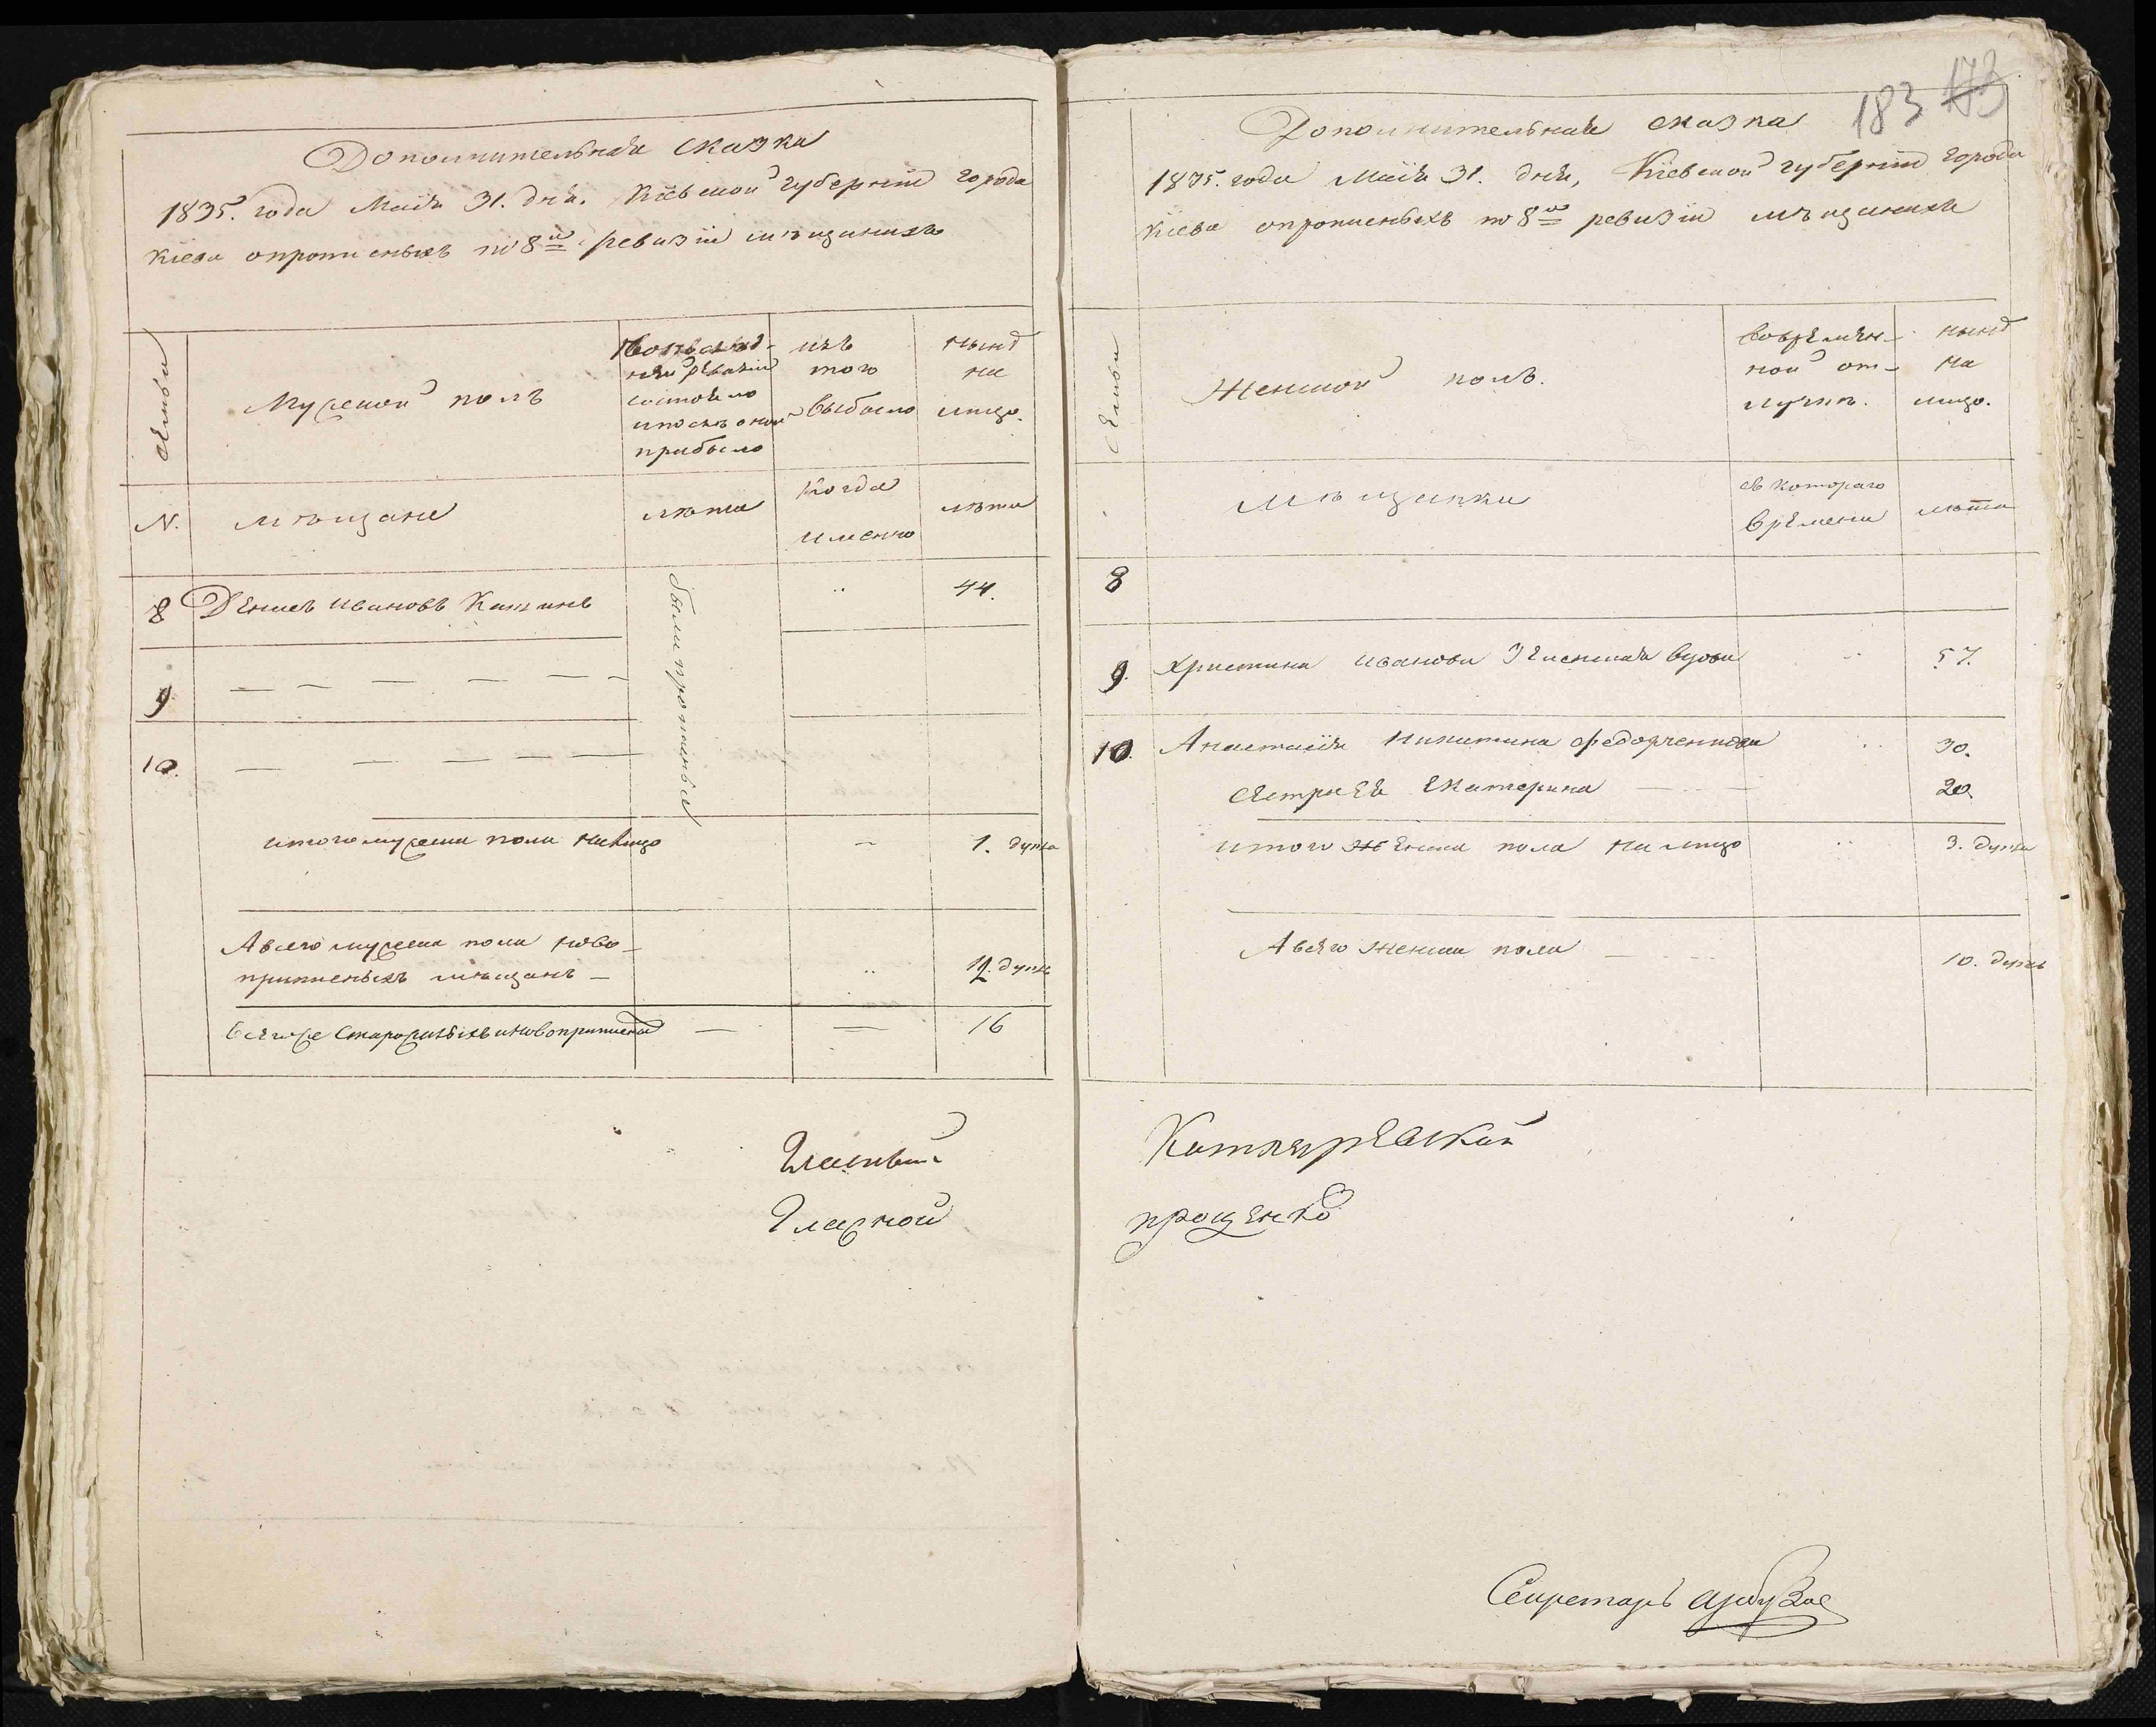 Дополнительная сказка
1835. года Маія 31. дня. Кіевской губерніи города
Кіева опрописныхъ по 8й ревизіи мѣщанахъ
Семьи
Мужеской полъ
по послѣд-
ней ревизіи
состояло
и послѣ оной
прибыло
изъ
того
выбыло
нынѣ
на
лицо.
N.
мѣщане
лѣта
когда
именно
лѣта
8 Денисъ Ивановъ
были прописны
44.
9
10.
итого мужеска пола налицо 1. душа
А всего мужеска пола ново-
приписныхъ мѣщанъ - 12. душъ
всего же старожилыхъ и новоприписныхъ 16
Гласный
Гласной
183 173
Дополнительная сказка
1835. года Маія 31. дня, Кіевской губерніи города
Кіева опрописныхъ по 8й ревизіи мѣщанахъ
Семьи
Женской полъ.
во времен-
ной от-
лучкѣ.
нынѣ
на
лицо.
Мѣщанки
съ котораго
времени
лѣта
8
9. Христина Иванова вдова 57.
10. Анастасія Никитина Федорченкова 30.
Сестра Ея Екатерина 20.
итого Женска пола на лицо 3. души
А всего Женска пола 10. душъ
Котляревскій
проценко
Секретарь